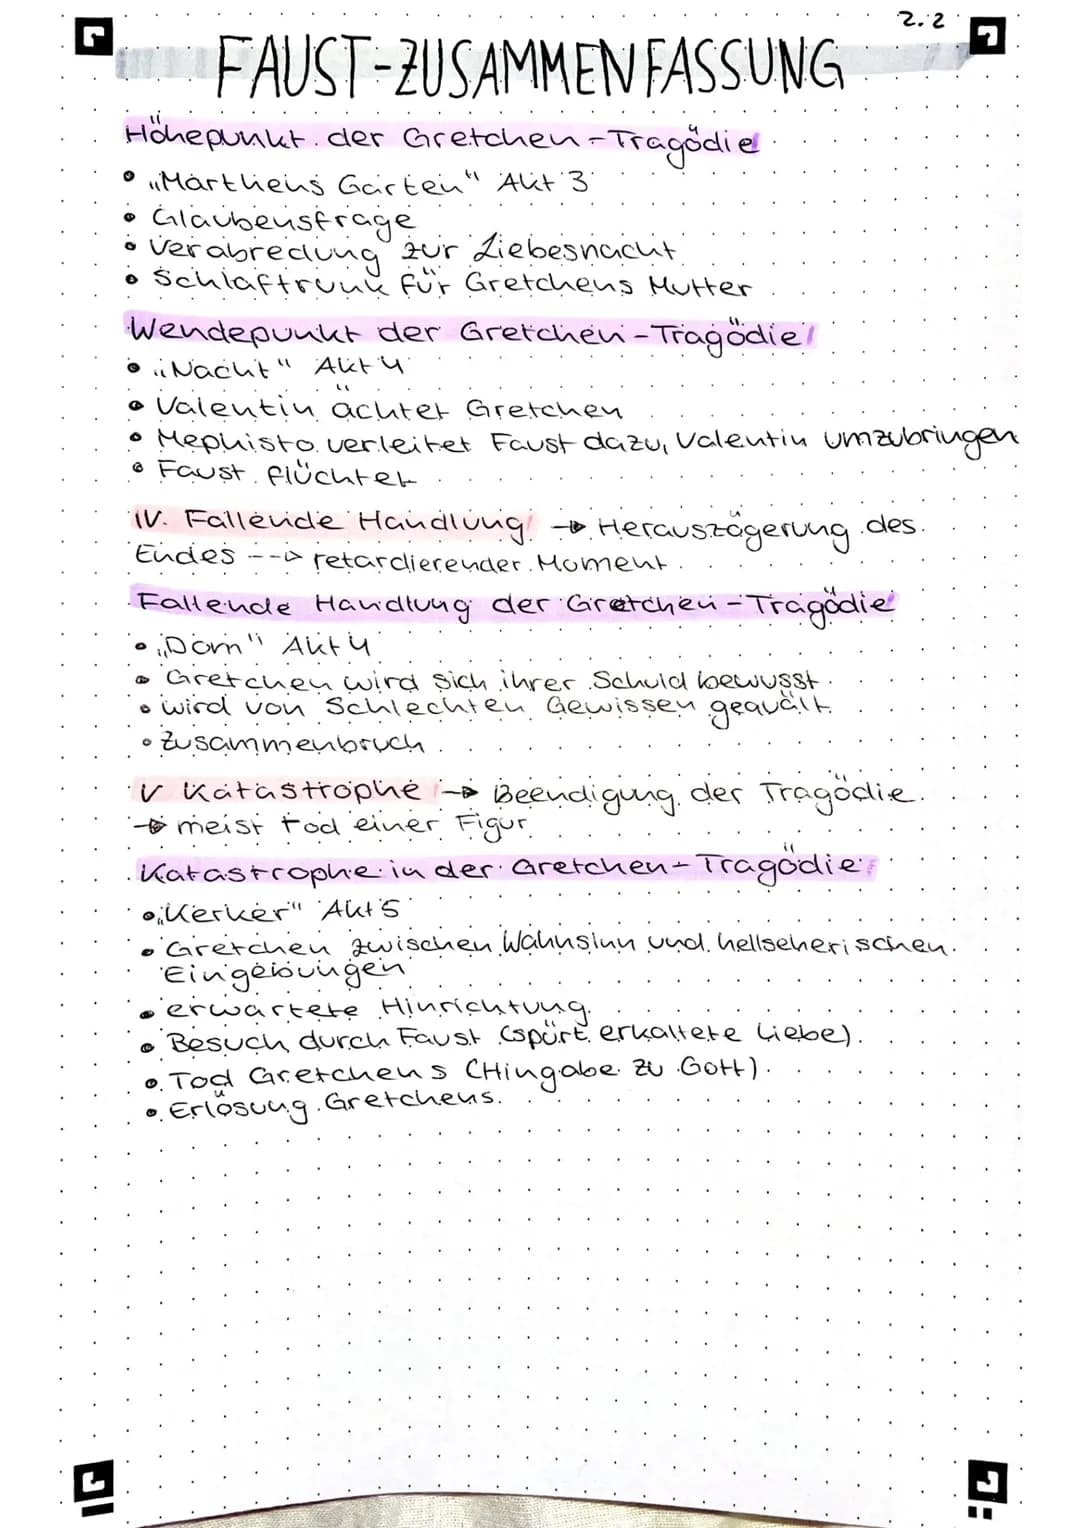 2.2
FAUST-ZUSAMMENFASSUNG
Höhepunkt der Gretchen-Tragödie
• „Marthens Garten" Akt 3
• Glaubensfrage
• Verabredung zur Liebesnacht
• Schlaftrunk für Gretchens Mutter
Wendepunkt der Gretchen-Tragödie
• „Nacht" Akt 4
• Valentin ächtet Gretchen
• Mephisto verleitet Faust dazu, Valentin umzubringen
• Faust flüchtet
IV. Fallende Handlung → Herauszögerung des
Endes --> retardierender Moment
Fallende Handlung der Gretchen-Tragödie
• „Dom" Akt 4
• Gretchen wird sich ihrer Schuld bewusst
• wird von Schlechten Gewissen gequält
• Zusammenbruch
V Katastrophe → Beendigung der Tragödie
→ meist tod einer Figur
Katastrophe in der Gretchen-Tragödie
• „Kerker" Akt 5
• Gretchen zwischen Wahnsinn und hellseherischen
Eingebungen
• erwartete Hinrichtung
• Besuch durch Faust (spürt erkaltete Liebe)
• Tod Gretchens (Hingabe zu Gott)
• Erlösung Gretchens